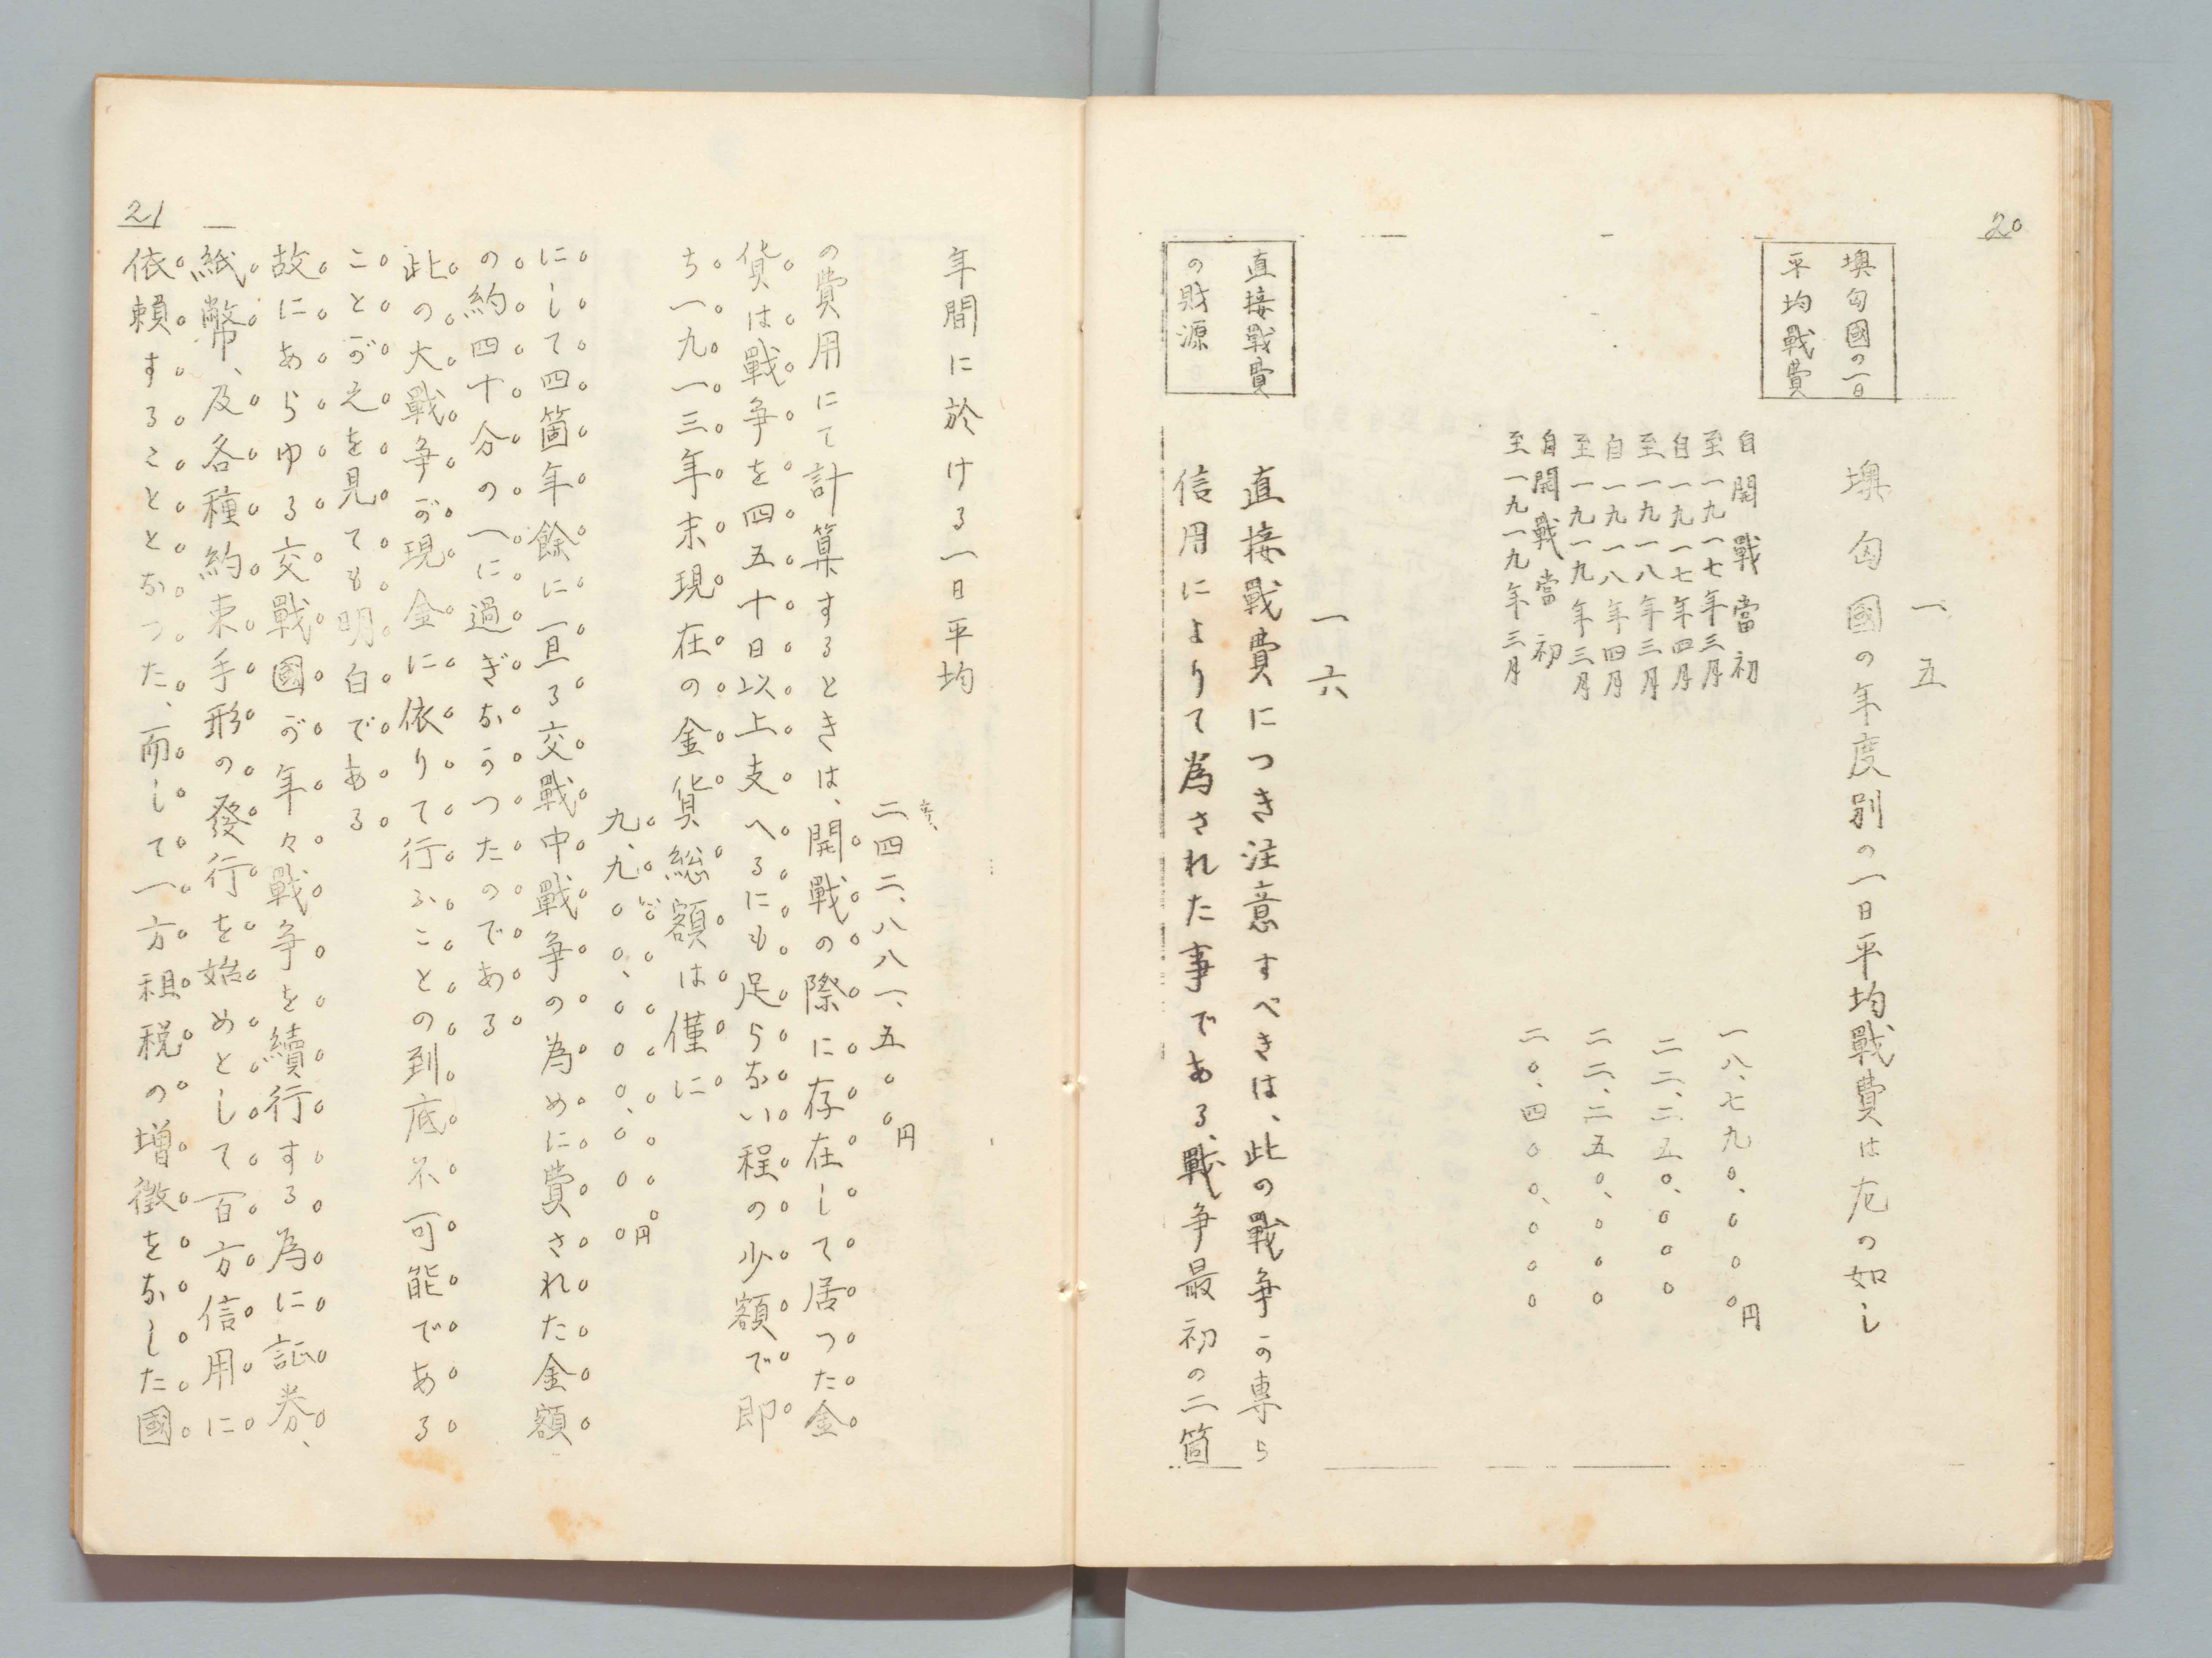 20
墺匈國の一日
平均戰費
一五
墺匈國の年度別の一日平均戰費は左の如し
自開戰當初
至一九一七年三月
一八、七九〇、〇〇〇円
自一九一七年四月
至一九一八年三月
二二、二五〇、〇〇〇
自一九一八年四月
至一九一九年三月
二二、二五〇、〇〇〇
自開戰當初
至一九一九年三月
二〇、四〇〇、〇〇〇
一六
直接戰費
の財源
直接戰費につき注意すべきは、此の戰争の専ら
信用によりて為された事である、戰争最初の二箇
年間に於ける一日平均
二四二、八八一、五〇〇円
の費用にて計算するときは、開戰の際に存在して居つた金
貨は戰争を四五十日以上支へるにも足らない程の少額で即
ち一九一三年末現在の金貨総額は僅に
九、九〇〇、〇〇〇、〇〇〇円
にして四箇年餘に亘る交戰中戰争の為めに費された金額
の約四十分の一に過ぎなかつたのである
此の大戰争が現金に依りて行ふことの到底不可能である
ことが之を見ても明白である
故にあらゆる交戰國が年々戰争を續行する為に証券、
紙幣、及各種約束手形の發行を始めとして百方信用に
依頼することとなつた、而して一方租税の増徴をなした國
21